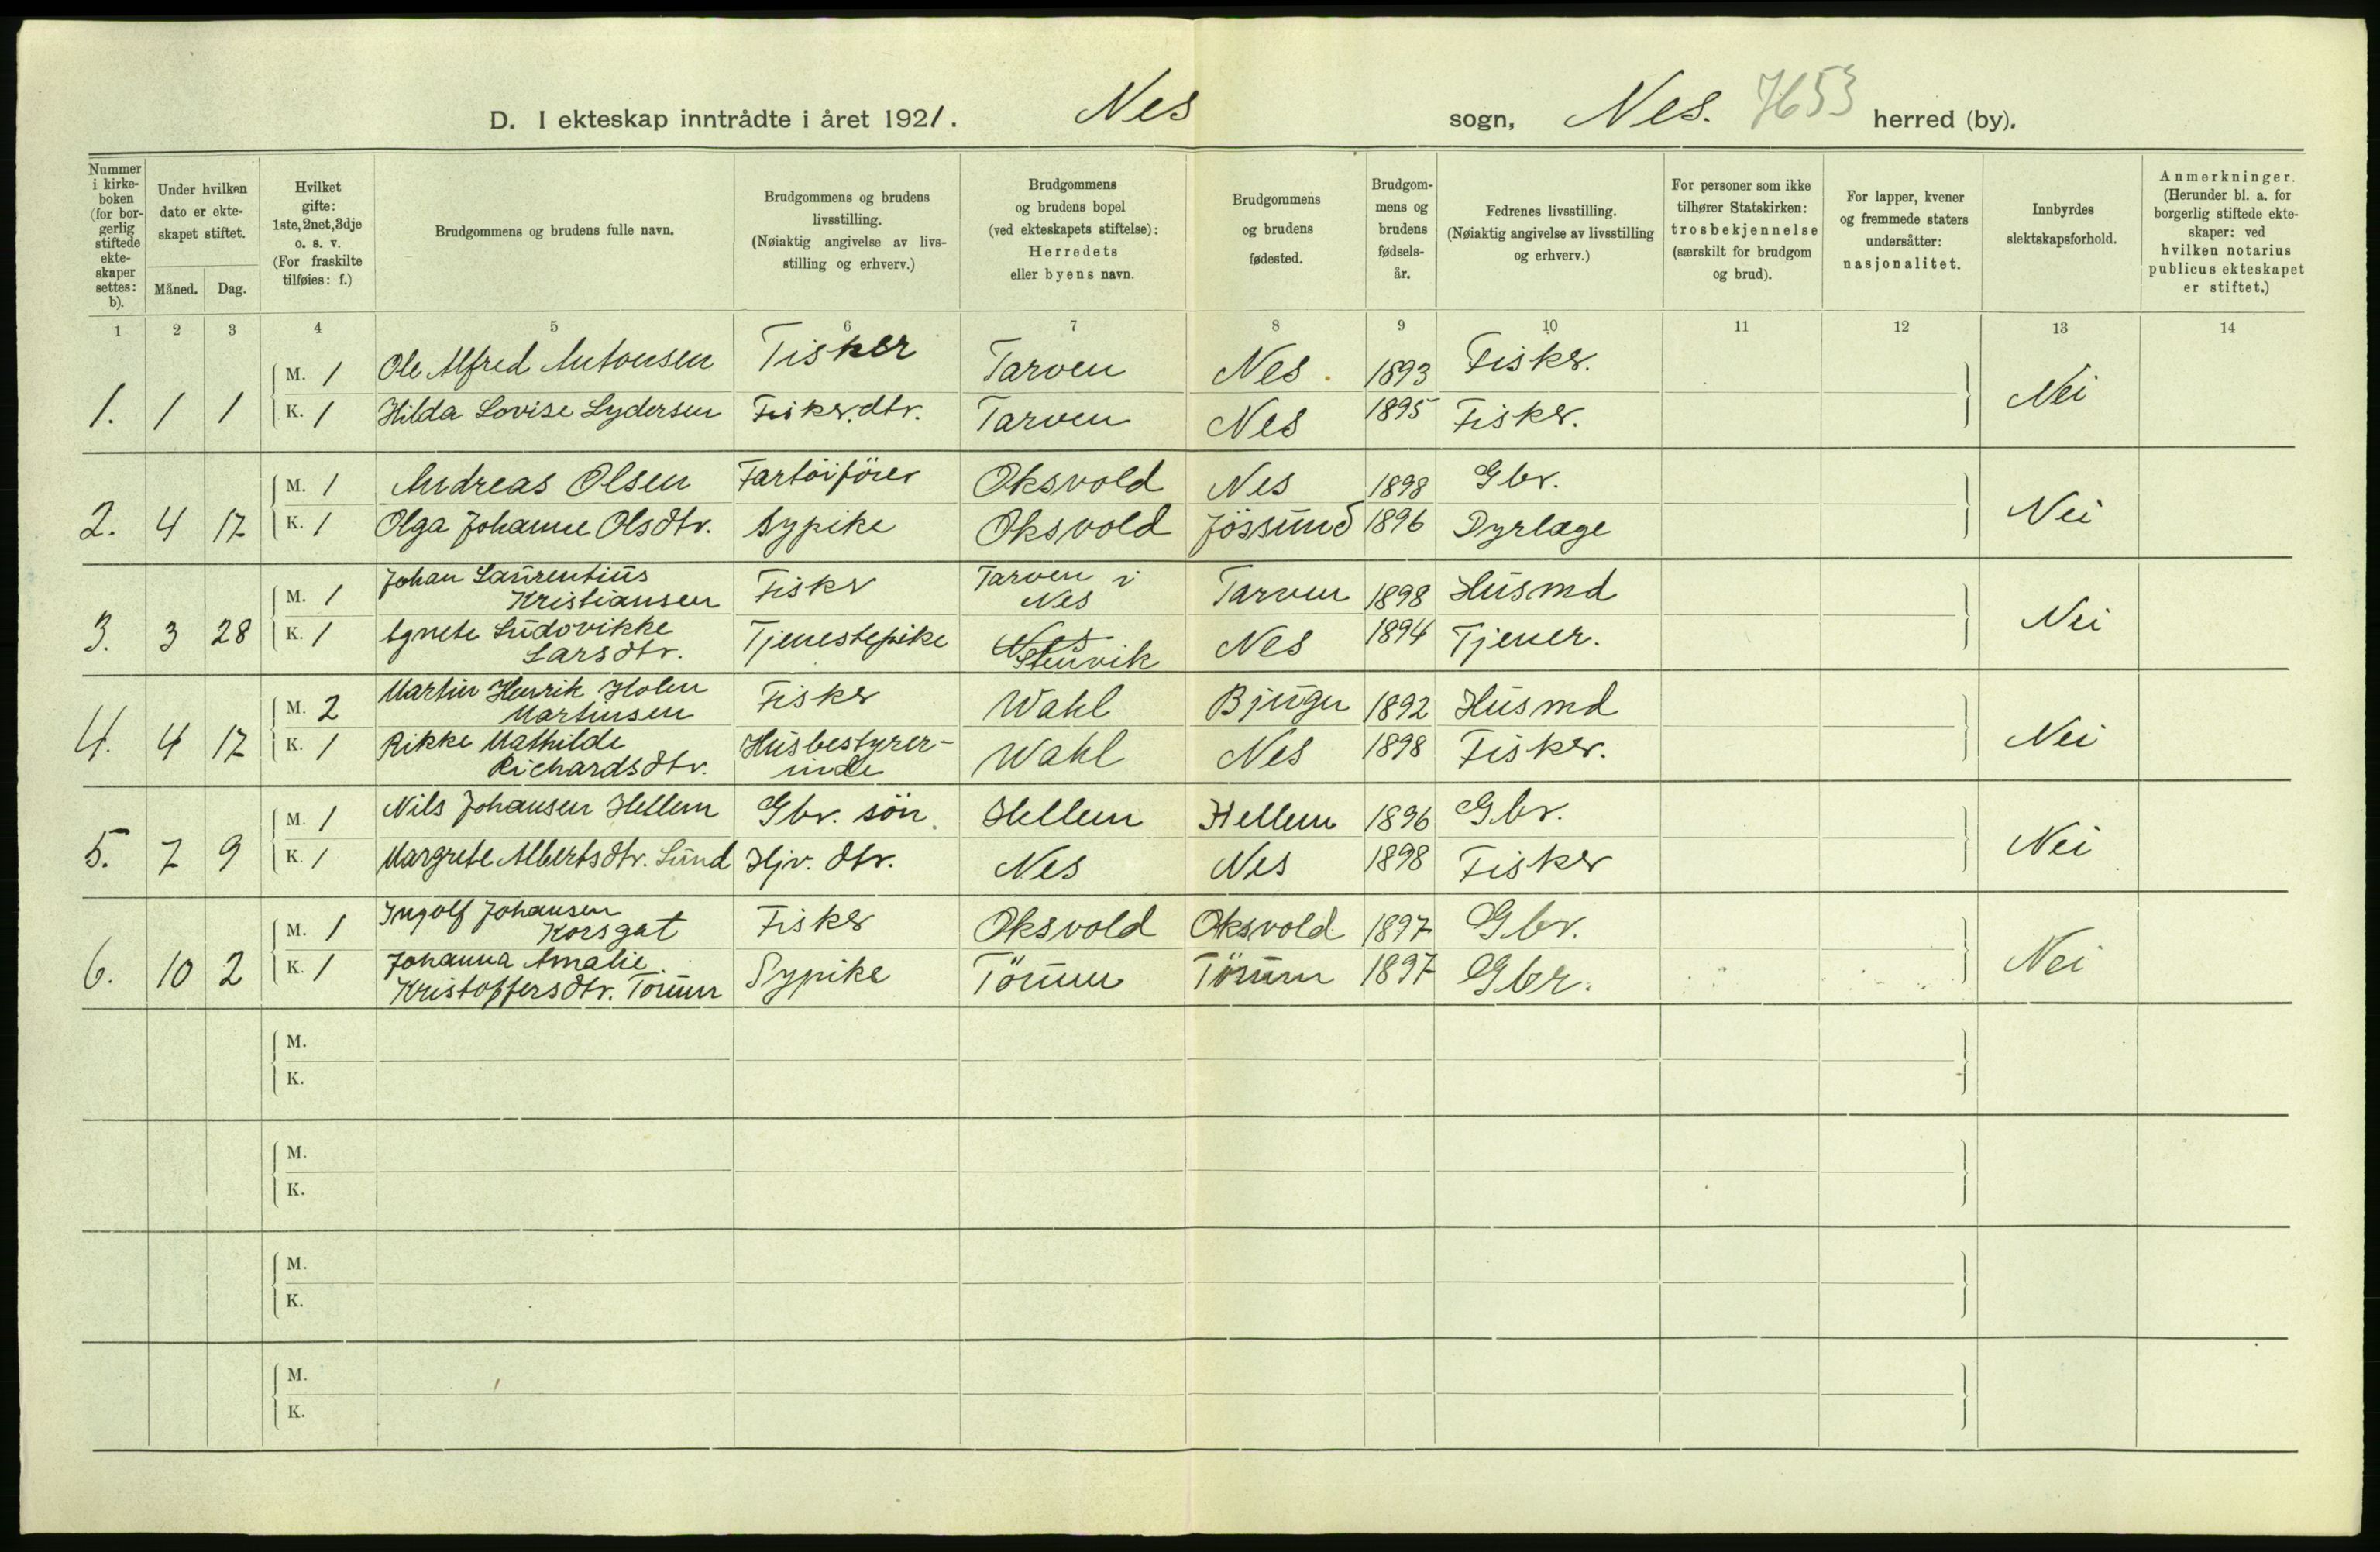 D. I ekteskap inntrådte i året 1921. Nes sogn, Nes. 7653 herred (by).
Nummer i kirke-boken (for bor-gerlig stiftede ekte-skaper settes: b).
Under hvilken dato er ekte-skapet stiftet.
Måned. Dag.
Hvilket gifte: 1ste, 2net, 3dje o. s. v. (For fraskilte tilføies: f.)
Brudgommens og brudens fulle navn.
Brudgommens og brudens livsstilling. (Nøiaktig angivelse av livs-stilling og erhverv.)
Brudgommens og brudens bopel (ved ekteskapets stiftelse): Herredets eller byens navn.
Brudgommens og brudens fødested.
Brudgom-mens og brudens fødsels-år.
Fedrenes livsstilling. (Nøiaktig angivelse av livsstilling og erhverv.)
For personer som ikke tilhører Statskirken: trosbekjennelse (særskilt for brudgom og brud).
For lapper, kvener og fremmede staters undersåtter: nasjonalitet.
Innbyrdes slektskapsforhold.
Anmerkninger. (Herunder bl. a. for borgerlig stiftede ekte-skaper: ved hvilken notarius publicus ekteskapet er stiftet.)
1 2 3 4 5 6 7 8 9 10 11 12 13 14
M. 1 Ole Alfred Antonsen Fisker Tarven Nes. 1893 Fisker.
1. 1 1 K. 1 Hilda Lovise Lydersen Fisker.dtr. Tarven Nes 1895 Fisker. Nei
M. 1 Andreas Olsen Fartöiförer Oksvold Nes 1898 Gbr.
2. 4 17 K. 1 Olga Johanne Olsdtr. Sypike Oksvold Jössund 1896 Dyrlæge Nei
M. 1 Johan Laurentius Kristiansen Fisker Tarven i Nes Tarven 1898 Husmd
3. 3 28 K. 1 Agnete Ludovikke Larsdtr. Tjenestepike Nes Stenvik Nes 1894 Tjener. Nei
M. 2 Martin Henrik Holen Martinsen Fisker Wahl Bjugn 1892 Husmd
4. 4 17 K. 1 Rikke Mathilde Richardsdtr. Husbestyrer-inde Wahl Nes 1898 Fisker. Nei
M. 1 Nils Johansen Hellem Gbr. sön. Hellem Hellem 1896 Gbr.
5. 7 9 K. 1 Margrete Albertsdtr. Lund Hjv. dtr. Nes Nes 1898 Fisker Nei
M. 1 Ingolf Johansen Korsgat Fisker Oksvold Oksvold 1897 Gbr.
6. 10 2 K. 1 Johanna Amalie Kristoffersdtr. Törum Sypike Törum Törum 1897 Gbr. Nei
M.
K.
M.
K.
M.
K.
M.
K.